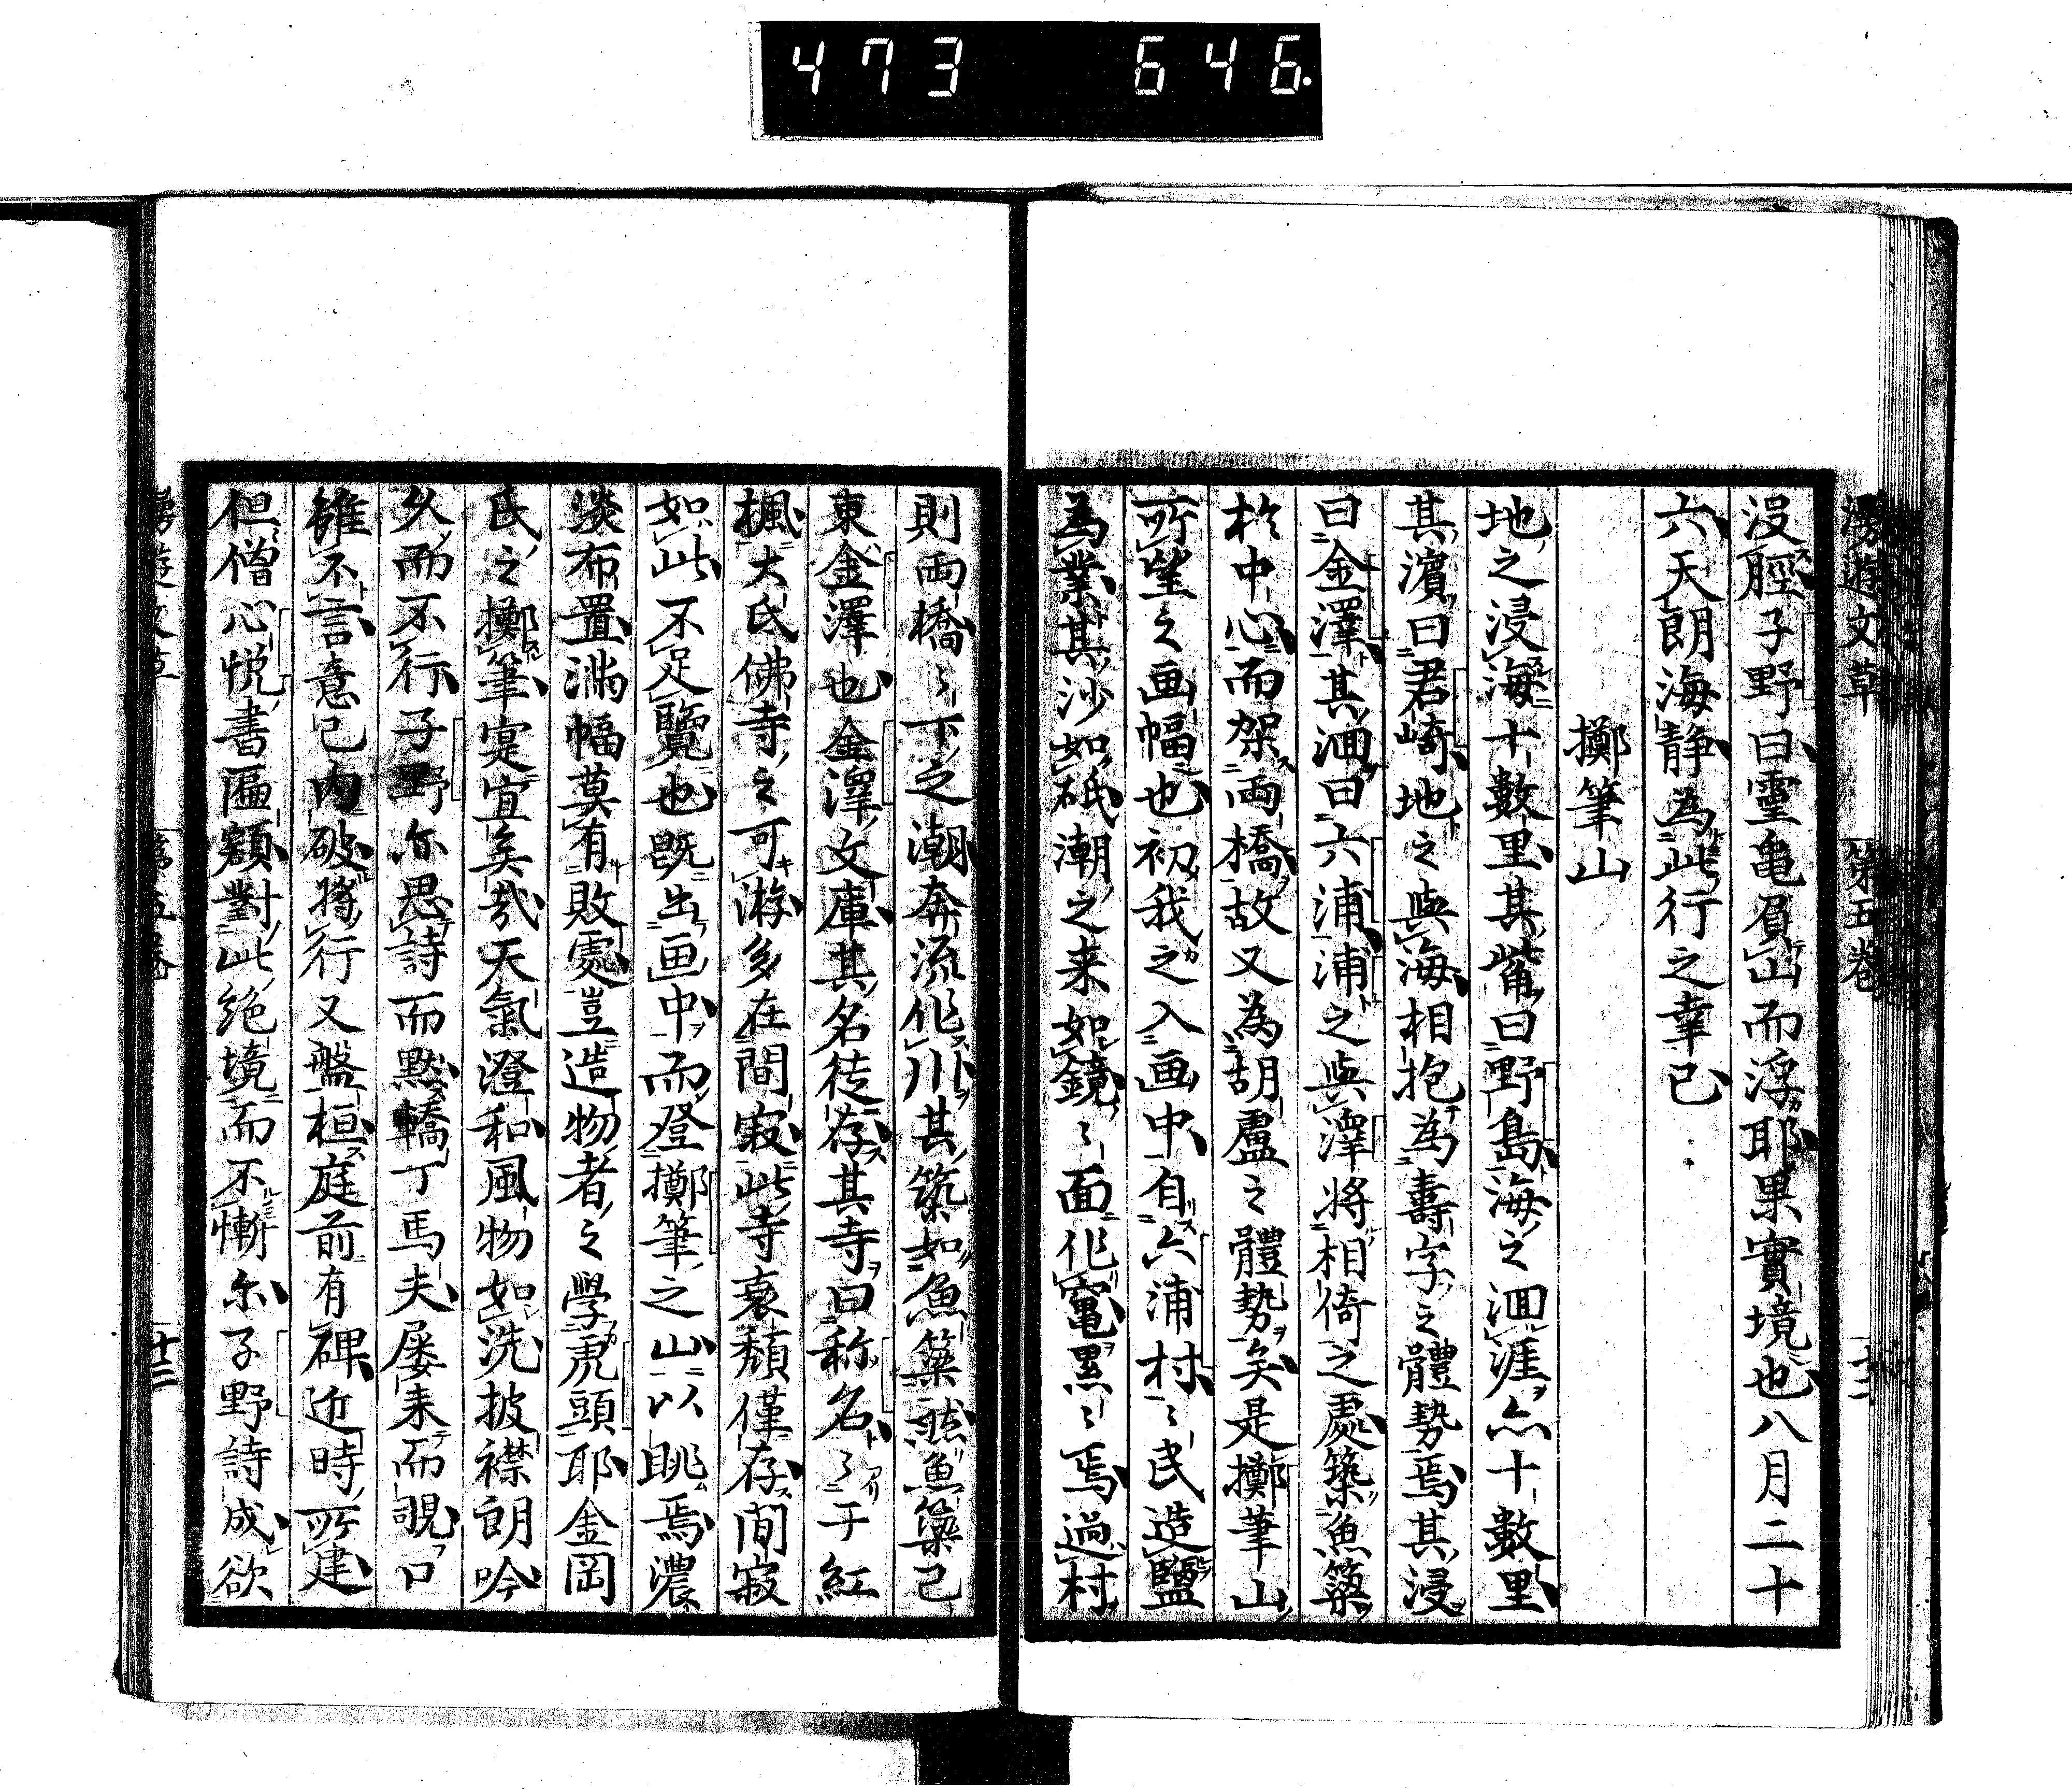 473 646.
漫遊文草 第五卷 十二
沒脛子野曰靈亀負山而浮耶果實境也八月二十
六天朗海静為此行之幸已
擲筆山
地之浸海十數里其觜曰野島海之洄涯亦十數里
其濱曰君崎地之與海相抱為壽字之體勢焉其浸
曰金澤其洄曰六浦浦之與澤将相倚之處築魚簗
於中心而架両橋故又為胡盧之體勢矣是擲筆山
所望之画幅也初我之入画中自六浦村々民造鹽
為業其沙如砥潮之来如鏡々面作竃黒々焉過村
則両橋々下之潮奔流作川其築如魚簗然魚簗已
東金澤也金澤文庫其名徒存其寺曰称名々于紅
楓大氐佛寺之可游多在間寂此寺衰頽僅存間寂
如此不足覽也既出画中而登擲筆之山以眺焉濃
淡布置満幅莫有敗處豈造物者之學虎頭耶金岡
氏之擲筆寔宜矣哉天氣澄和風物如洗披襟朗吟
久而不行子野亦思詩而默轎丁馬夫屡来而覗口
雖不言意已内破将行又盤桓庭前有碑近時所建
但僧心悦書匾額對此絶境而不慚尓子野詩成欲
漫遊文草 第五卷 十二